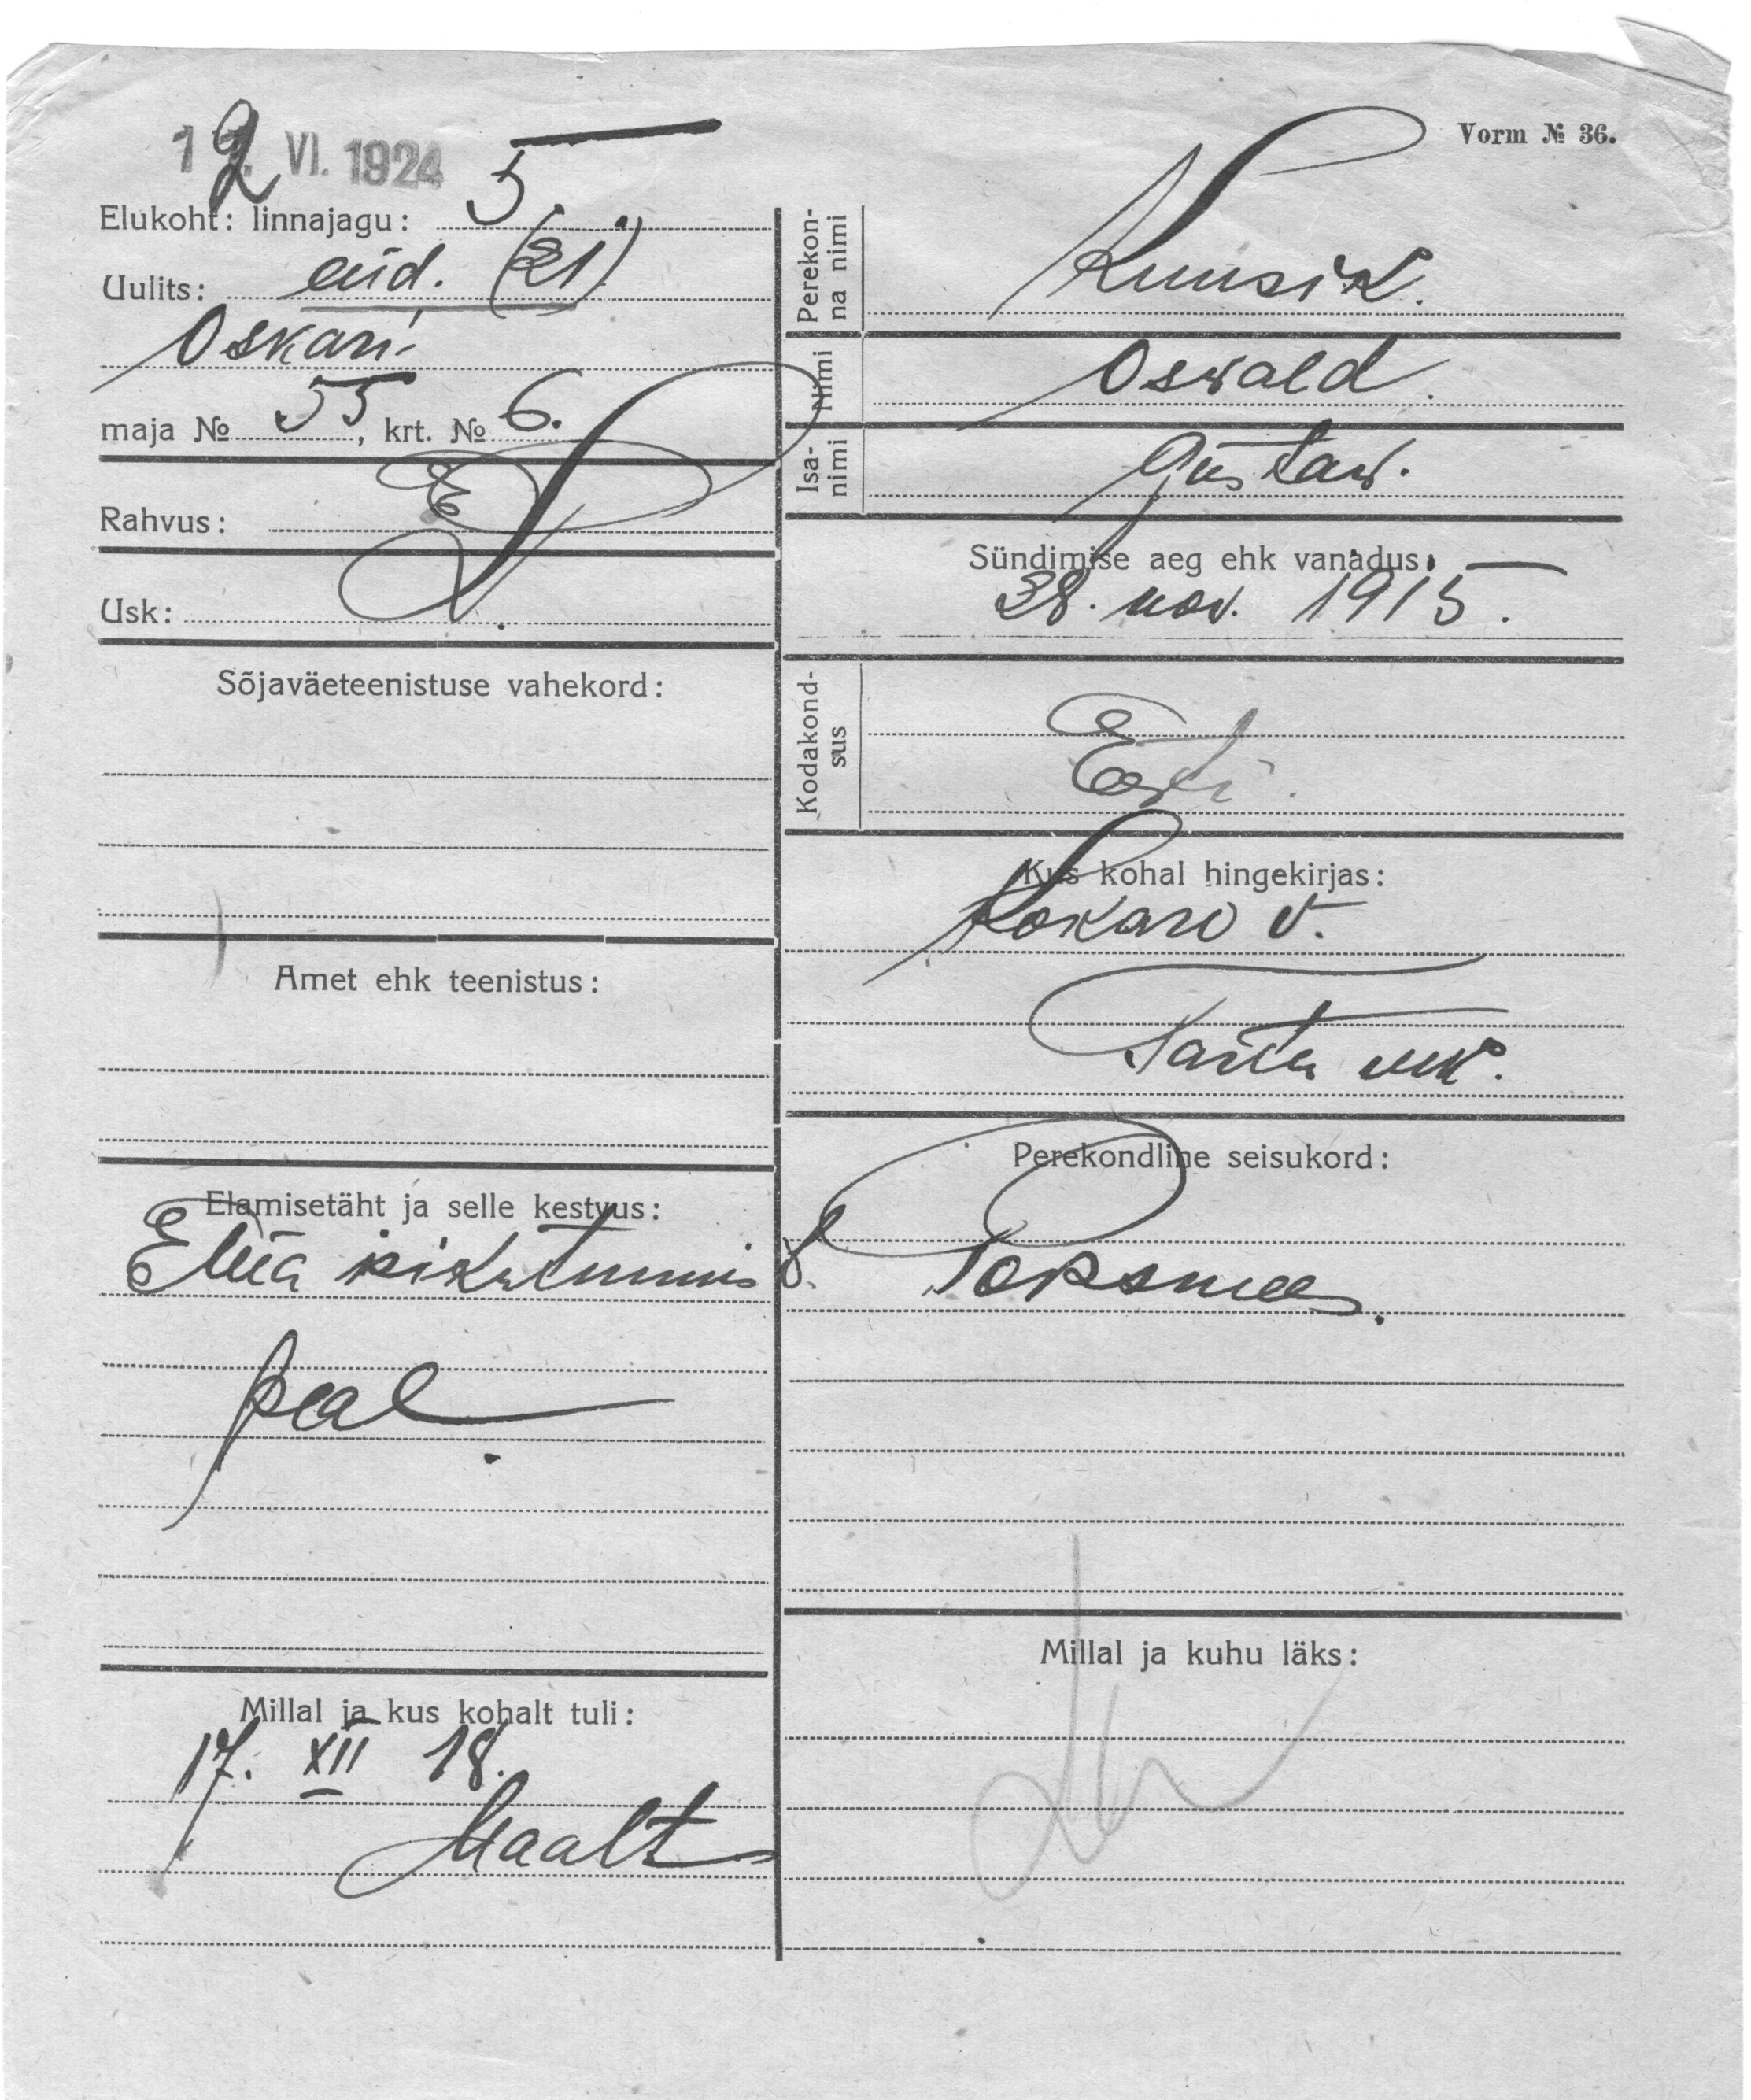 Vorm № 36.
12. VI. 1924
Elukoht: linnajagu: 5.
Uulits: (21)
Oskari
maja № 55, krt. № 6.
Rahvus: E
Usk:
Sõjaväeteenistuse vahekord:
Amet ehk teenistus:
Elamisetäht ja selle kestvus:
Elüa
peal.
Millal ja kus kohalt tuli:
17. XII 18.
Maalt
Perekon-
na nimi
Kuusik.
Nimi Oswald.
Isa-
nimi
Gustaw.
Sündimise aeg ehk vanadus.
28. nov. 1915.
Kodakond-
sus
Eesti.
Kus kohal hingekirjas:
Kokaro v.
Tartu mk.
Perekondline seisukord:
Poksmees.
Millal ja kuhu läks: